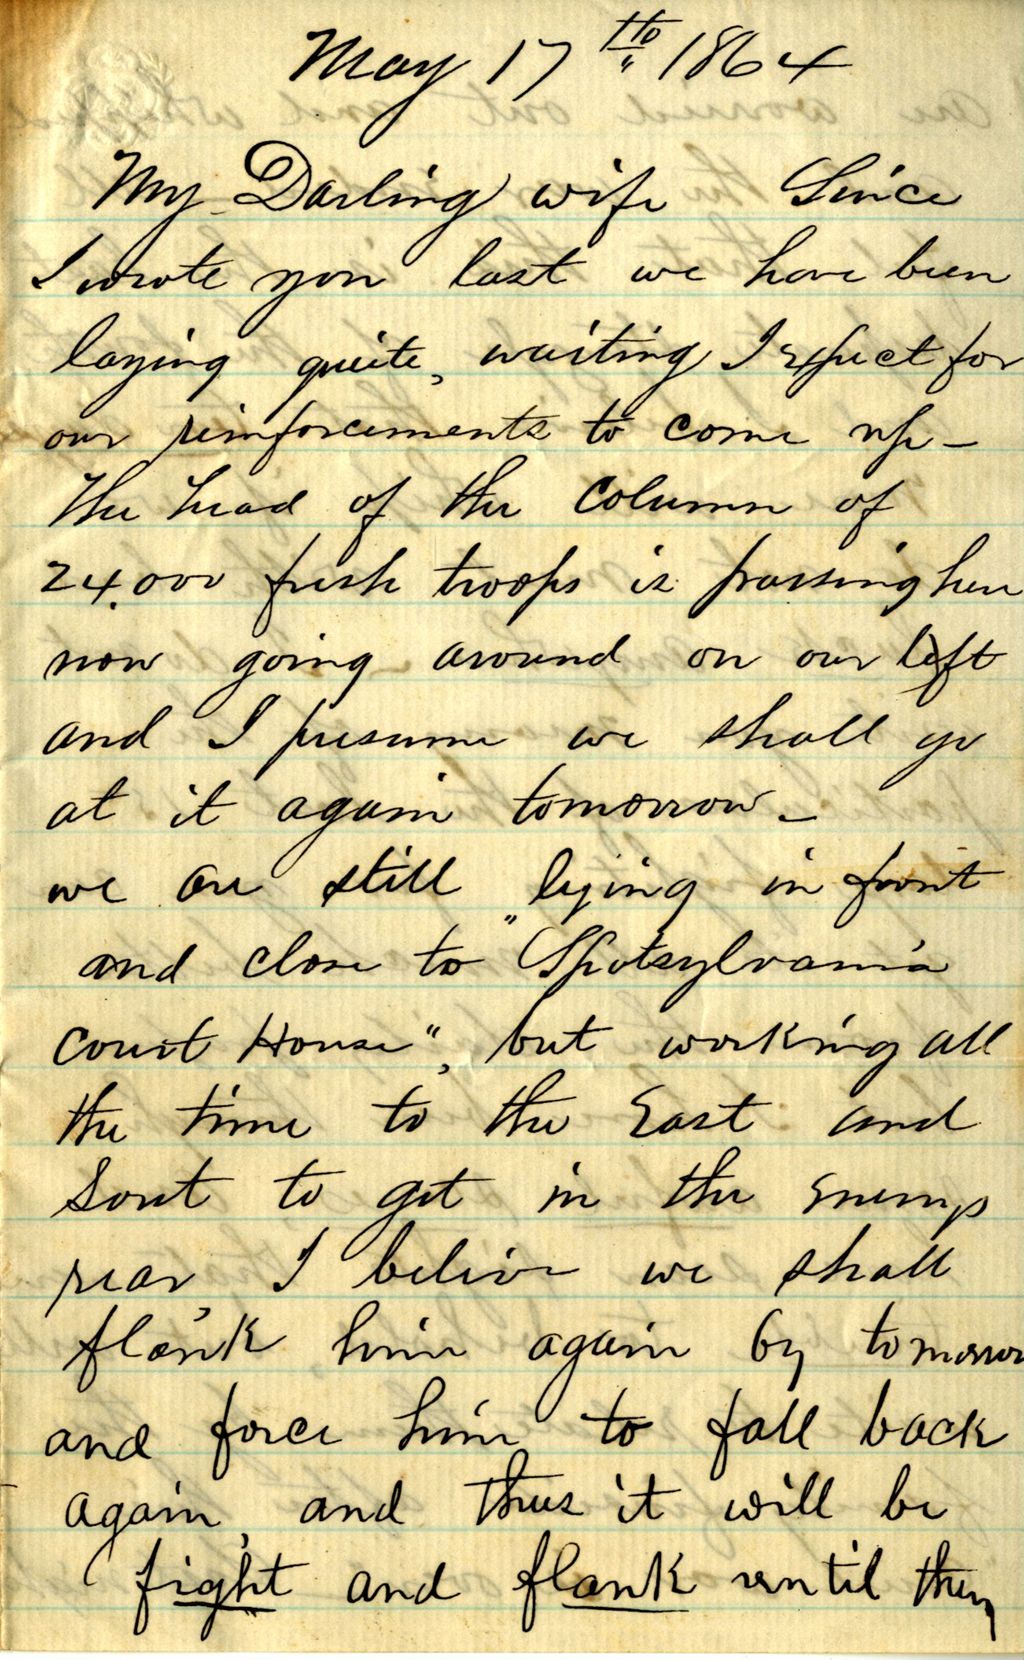 May 17th 1864
My Darling wife Since
I wrote you last we have been
laying quite, waiting I expect for
our reinforcements to come up—
The head of the column of
24.000 fresh troops is passing here
now going around on our left
and I presume we shall go
at it again tomorrow—
we are still lying in front
and close to "Spotsylvania
Court House", but working all
the time to the East and
Sout to get in the enemys
rear, I believe we shall
flank him again by tomorrow
and force him to fall back
again, and thus it will be
fight and flank until they